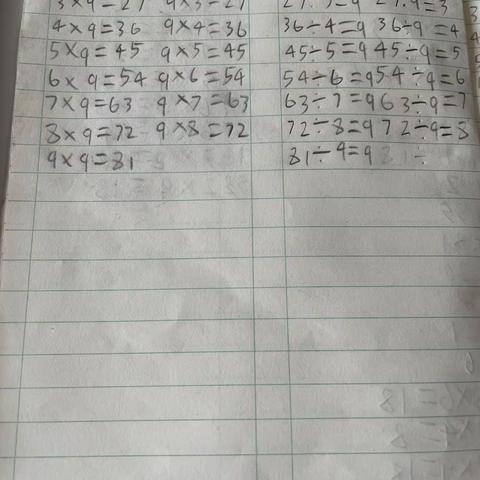 3×9=27 9×3=27 27÷3=9 27÷9=3
4×9=36 9×4=36 36÷4=9 36÷9=4
5×9=45 9×5=45 45÷5=9 45÷9=5
6×9=54 9×6=54 54÷6=9 54÷9=6
7×9=63 9×7=63 63÷7=9 63÷9=7
8×9=72 9×8=72 72÷8=9 72÷9=8
9×9=81 81÷9=9